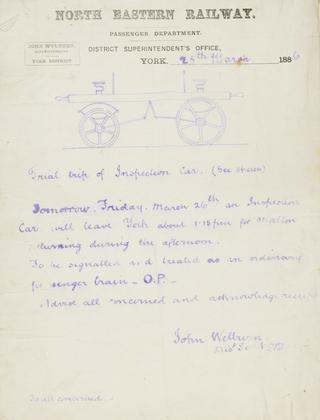 NORTH EASTERN RAILWAY.
PASSENGER DEPARTMENT.
JOHN WELBURN,
YORK DISTRICT
DISTRICT SUPERINTENDENT'S OFFICE,
YORK. 25th March 1886
Trial trip of Inspection Car. (See sketch)
Tomorrow, Friday, March 26th an Inspection
Car will leave York about 1.15 pm for Malton
returning during the afternoon.
To be signalled and treated as an ordinary
passenger train - O.P. -
Advise all concerned and acknowledge receipt
John Welburn
To all concerned